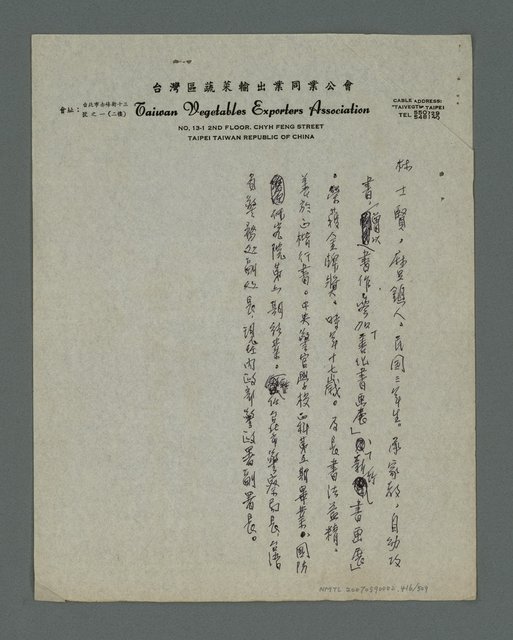 台灣區蔬菜輸出業同業公會
會址：台北市赤峰街十三號之一(二樓)
Taiwan Vegetables Exporters Association
NO. 13-1 2ND FLOOR. CHYH FENG STREET
TAIPEI TAIWAN REPUBLIC OF CHINA
CABLE ADDRESS:
"TAIVEGTA" TAIPEI
TEL
林士賢，人。民國三年生。承家教，自幼攻
書，曾以書作參加善化書畫展」「新書画展」
。榮獲金牌獎。時年十七歲。及長書法益精。
善於正楷行書。中央警官學校正科第五期畢業。國防
研究院第七期結業。任台北市警察局長、台灣
省警務處副處長，現任內政部警政署副署長。
NMTL 20070590002. 416/509